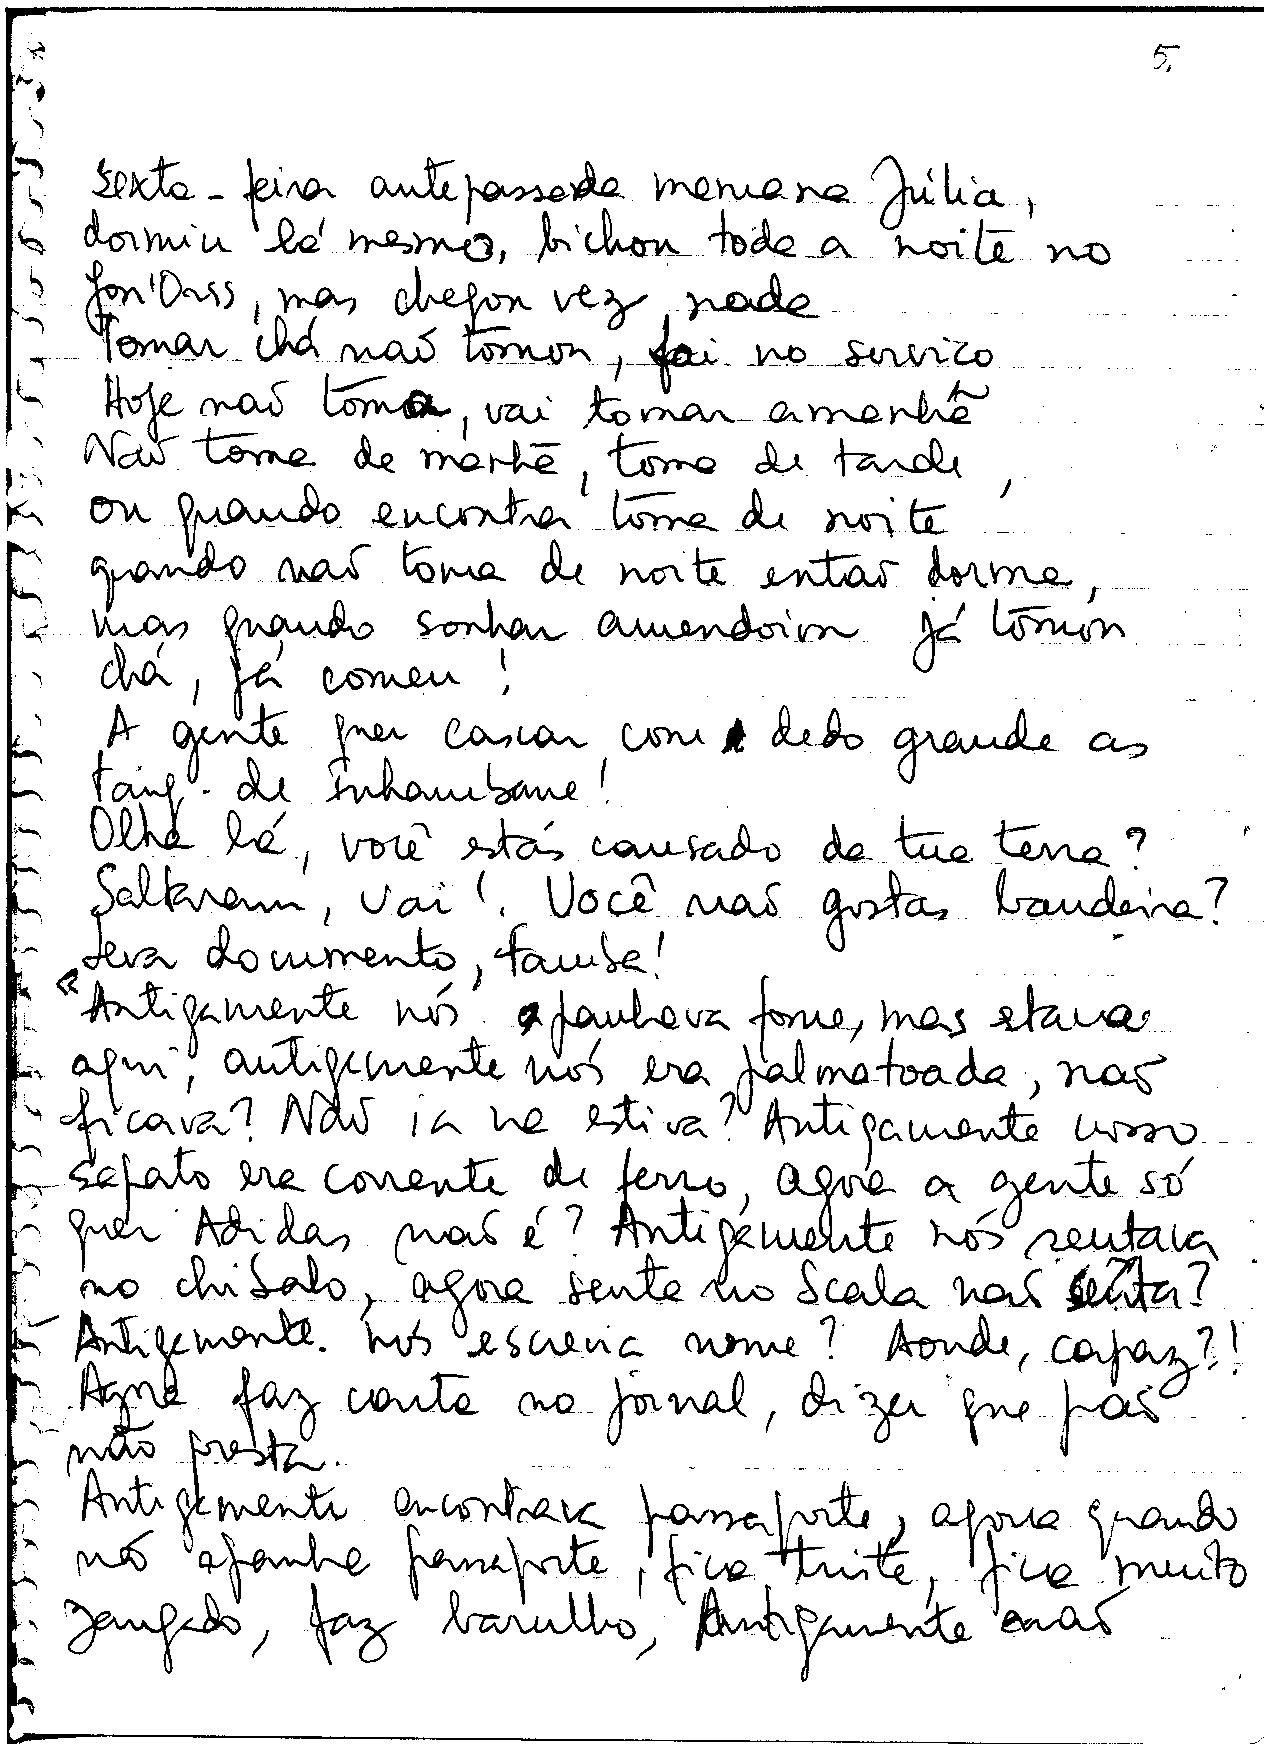 5.
sexta-feira antepassada mamana Júlia,
dormiu lá mesmo, bichou toda a noite no
Jon'Orss, mas chegou vez, nada
Tomar chá não tomou, foi no serviço
Hoje não toma, vai tomar amanhã
Não toma de manhã, toma de tarde,
ou quando encontra toma de noite
quando não toma de noite então dorme,
mas quando sonhar amendoim já tomou
chá, já comeu!
A gente quer cascar com dedo grande as
tang. de Inhambane!
Olha lá, você estás cansado da tua terra?
Saltaram, vai! Você não gostas bandeira?
Leva documento, famba!
"Antigamente nós apanhava fome, mas estava
aqui, antigamente nós era palmatoada, não
ficava? Não ia na estiva? Antigamente nosso
sapato era corrente de ferro, agora a gente só
quer Adidas, não é? Antigamente nós sentava
no chisalo, agora senta no Scala não senta?
Antigamente. nós escrevia nome? Aonde, capaz?!
Agora faz conta no jornal, dizer que país
não presta.
Antigamente encontrava passaporte, agora quando
nós apanha passaporte, fica triste, fica muito
zangado, faz barulho, Antigamente não